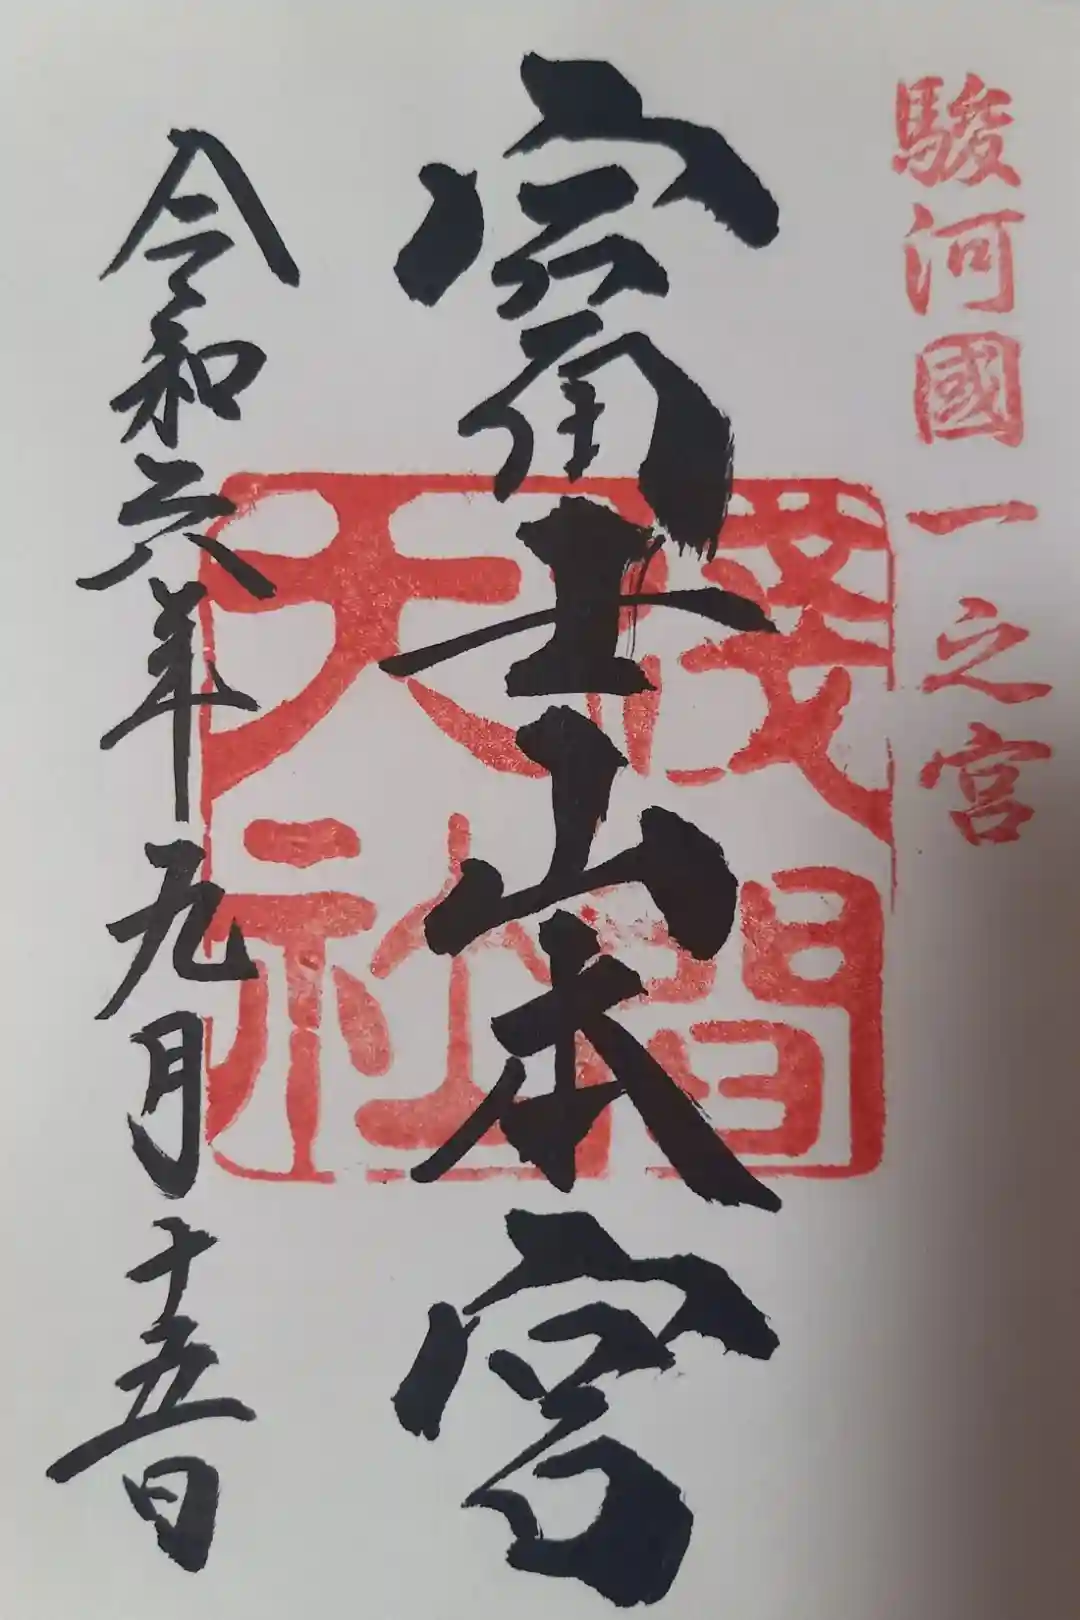 駿河國一之宮
富士山本宮
淺間
大社
令和六年九月十五日